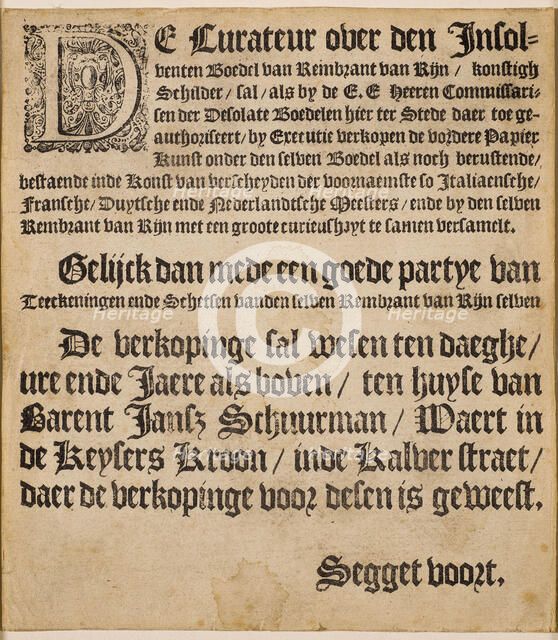 DE Curateur over den Insol-
venten Boedel van Rembrant van Rijn / konstigh
Schilder / sal / als by de E. E Heeren Commissari-
sen der Desolate Boedelen hier ter Stede daer toe ge-
authoriseert / by Executie verkopen de vordere Papier
Kunst onder den selven Boedel als noch berustende /
bestaende inde Konst van verscheyden der voornaemste so Italiaensche /
Fransche / Duytsche ende Nederlandtsche Meesters / ende by den selven
Rembrant van Rijn met een groote curieusheyt te samen versamelt.
Gelijck dan mede een goede partye van
Teeckeningen ende Schetsen vanden selven Rembrant van Rijn selven
De verkopinge sal wesen ten daeghe /
ure ende Jaere als boven / ten huyse van
Barent Jansz Schuurman / Waert in
de Keysers Kroon / inde Kalver straet /
daer de verkopinge voor desen is geweest.
Segget voort.
Heritage Heritage
C
Heritage Heritage